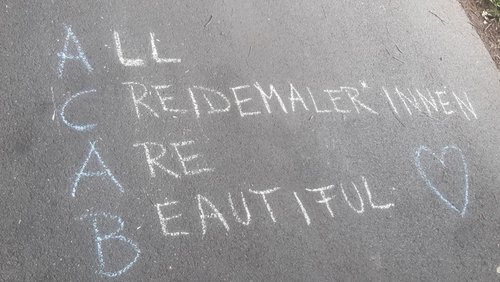 ALL
CREIDEMALER*INNEN
ARE
BEAUTIFUL